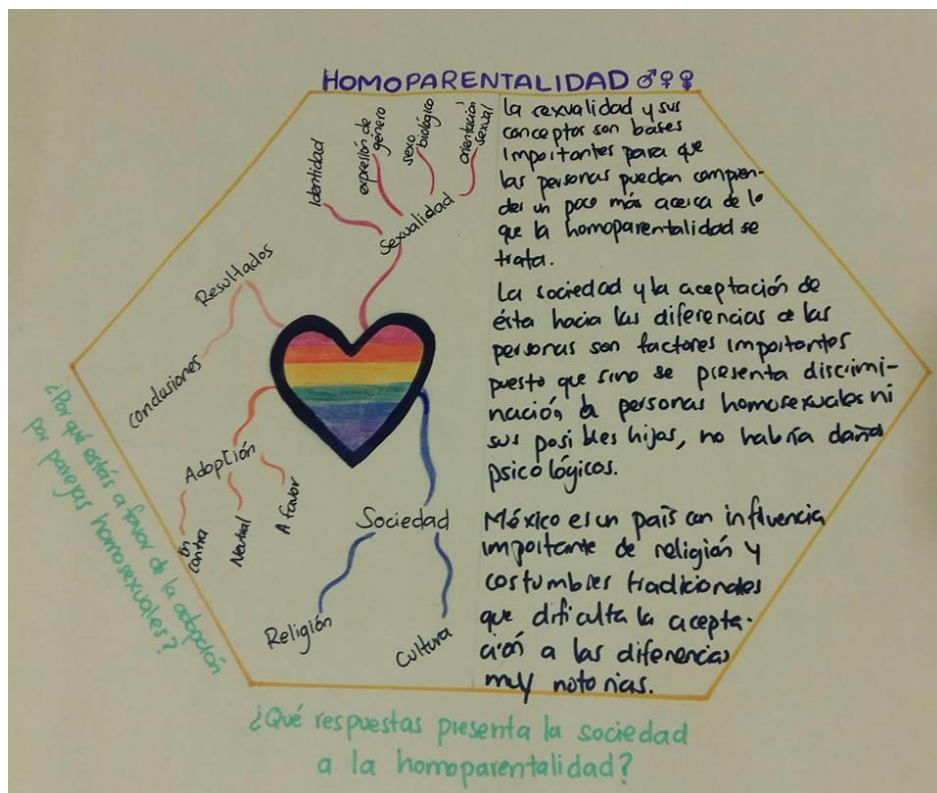 HOMOPARENTALIDAD ♂♀♀
Identidad
expresión de
género
sexo
biológico
orientación
sexual
Sexualidad
Resultados
conclusiones
Adopción
En
contra
Neutral
A favor
Sociedad
Religión
Cultura
La sexualidad y sus
conceptos son bases
importantes para que
las personas puedan compren-
der un poco más acerca de lo
que la homoparentalidad se
trata.
La sociedad y la aceptación de
ésta hacia las diferencias de las
personas son factores importantes
puesto que sino se presenta discrimi-
nación a personas homosexuales ni
sus posibles hijas, no habría daños
psicológicos.
México es un país con influencia
importante de religión y
costumbres tradicionales
que dificulta la acepta-
ción a las diferencias
muy notorias.
¿Por qué estás a favor de la adopción
por parejas homosexuales?
¿Qué respuestas presenta la sociedad
a la homoparentalidad?